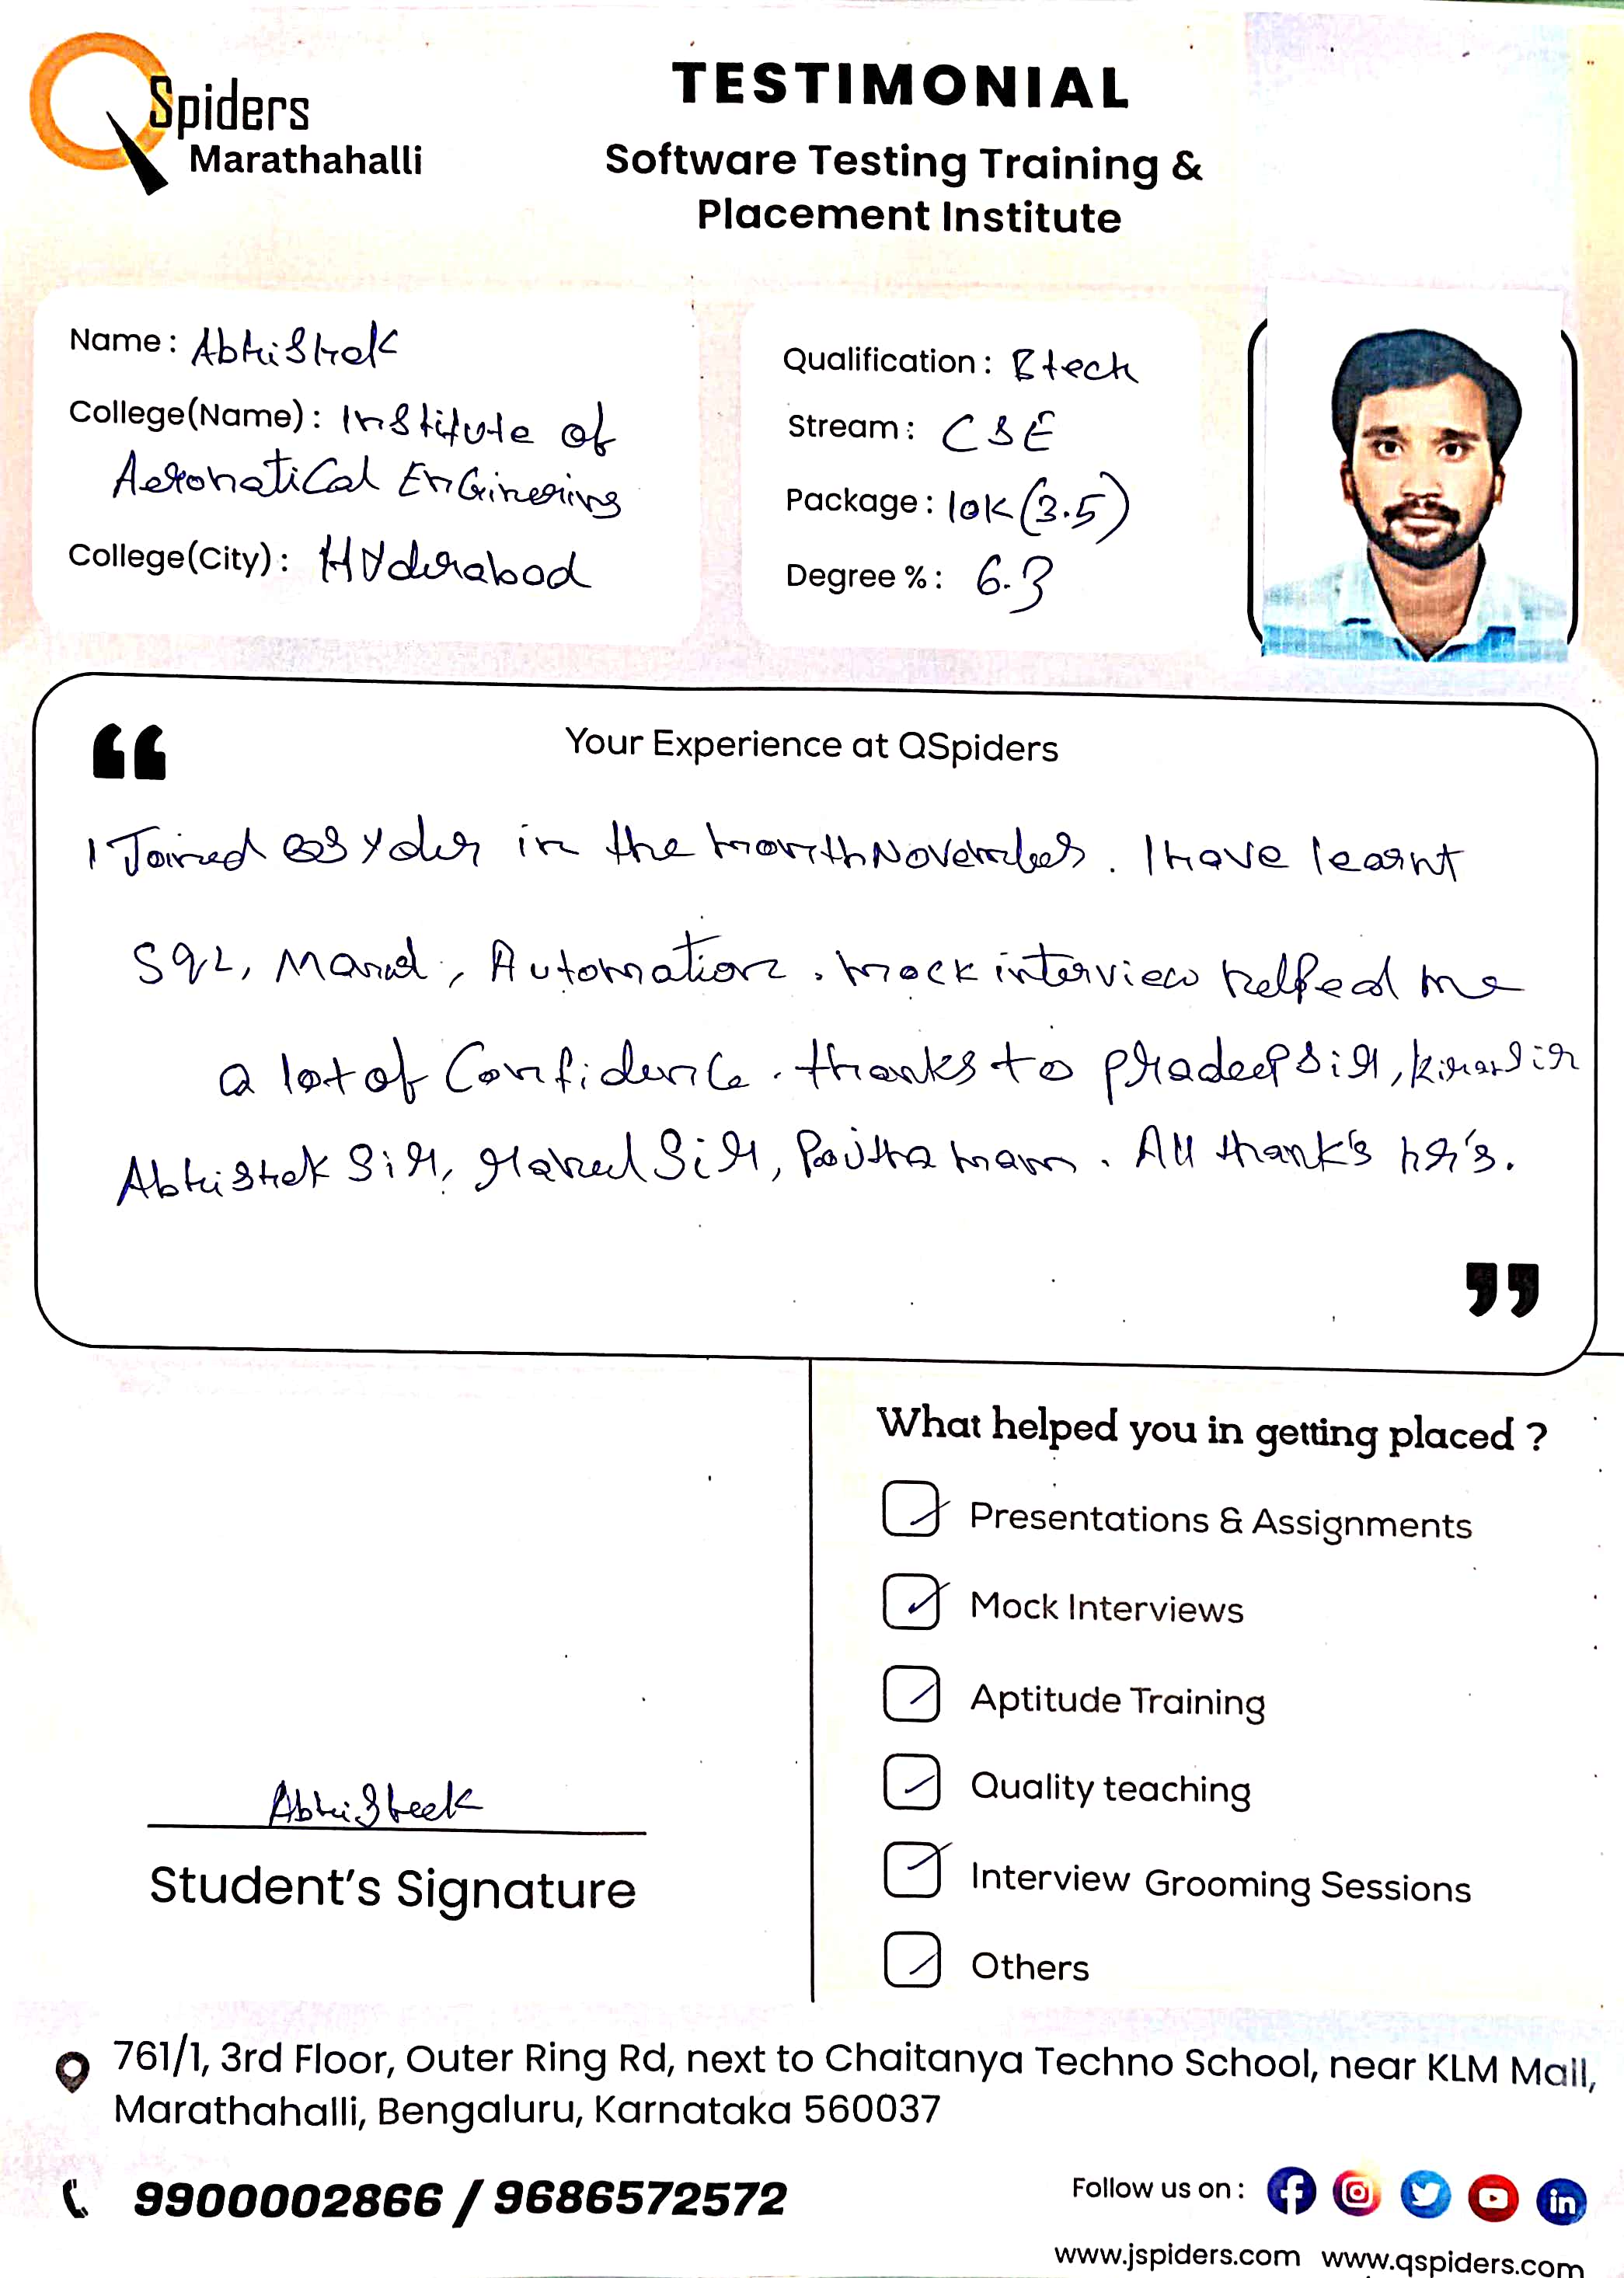 QSpiders
Marathahalli
TESTIMONIAL
Software Testing Training &
Placement Institute
Name : Abhishek
College(Name) : Institute of
Aeronatical Engineering
College(City) : Hyderabad
Qualification : Btech
Stream : CSE
Package : 10K (3.5)
Degree % : 6.3
Your Experience at QSpiders
I Joined in the month November. I have learnt
SQL, Manual, Automation. mock interview helped me
a lot of Confidence. thanks to pradeep sir, kiran sir
Abhishek Sir, Sir, Pavithra mam. All thank's hr's.
What helped you in getting placed ?
Presentations & Assignments
Mock Interviews
Aptitude Training
Quality teaching
Interview Grooming Sessions
Others
Abhisheek
Student's Signature
761/1, 3rd Floor, Outer Ring Rd, next to Chaitanya Techno School, near KLM Mall,
Marathahalli, Bengaluru, Karnataka 560037
9900002866 / 9686572572
Follow us on :
www.jspiders.com www.qspiders.com